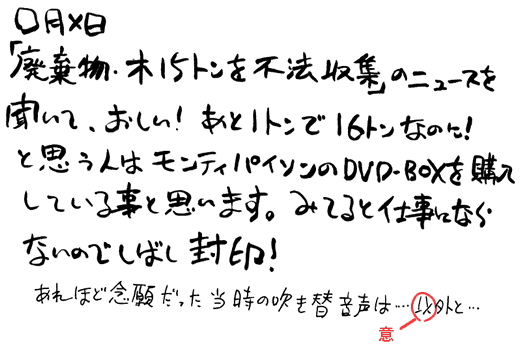 〇月×日
「廃棄物・木15トンを不法収集」のニュースを
聞いて、おしい！あと1トンで16トンなのに！
と思う人はモンティパイソンのDVD-BOXを購入
している事と思います。みてると仕事になら
ないのでしばし封印！
あれほど念願だった当時の吹き替音声は…以外と…
意